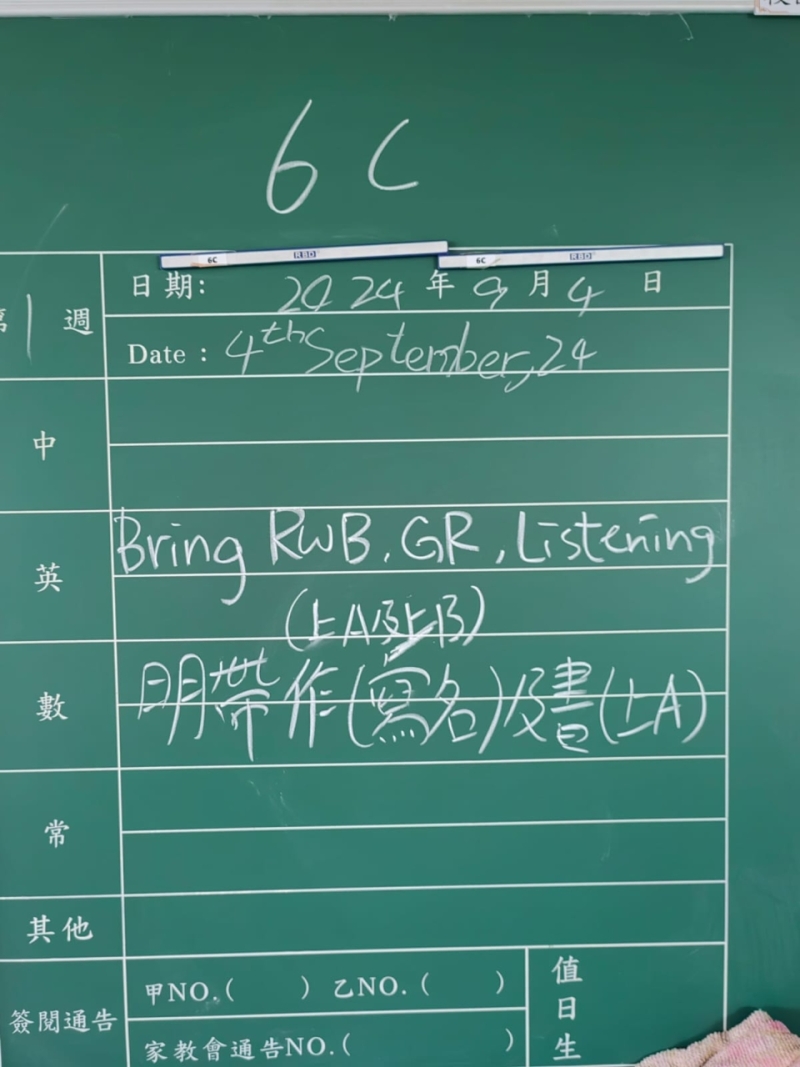 6C
6C RBD 6C RBD
第1週
日期: 2024年9月4日
Date : 4th September, 24
中
英
Bring RWB, GR, Listening
(上A及上B)
數
明帶作(寫名)及書(上A)
常
其他
簽閱通告
甲NO.( ) 乙NO.( )
家教會通告NO.( )
值日生